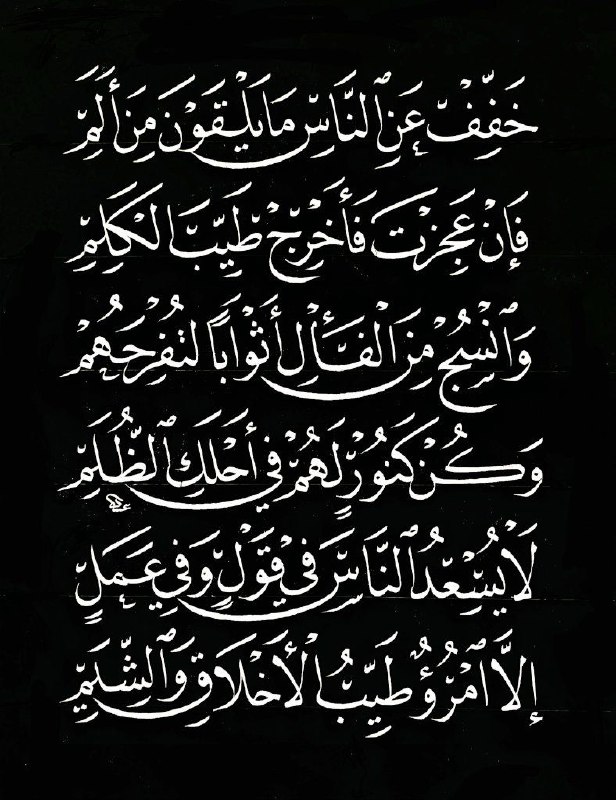 خَفِّفْ عَنِ ٱلنَّاسِ مَا يَلْقَوْنَ مِنْ أَلَمِ
فَإِنْ عَجِزْتَ فَأَخْرِجْ طَيِّبَ الْكَلِمِ
وَٱنْسُجْ مِنَ الْفَأْلِ أَثْوَابًا لِتُفْرِحَهُمْ
وَكُنْ كَنُورٍ لَهُمْ فِي أَحْلَكِ ٱلظُّلَمِ
لَا يُسْعِدُ ٱلنَّاسَ فِي قَوْلٍ وَفِي عَمَلٍ
إِلَّا ٱمْرُؤٌ طَيِّبُ الْأَخْلَاقِ وَٱلشِّيَمِ